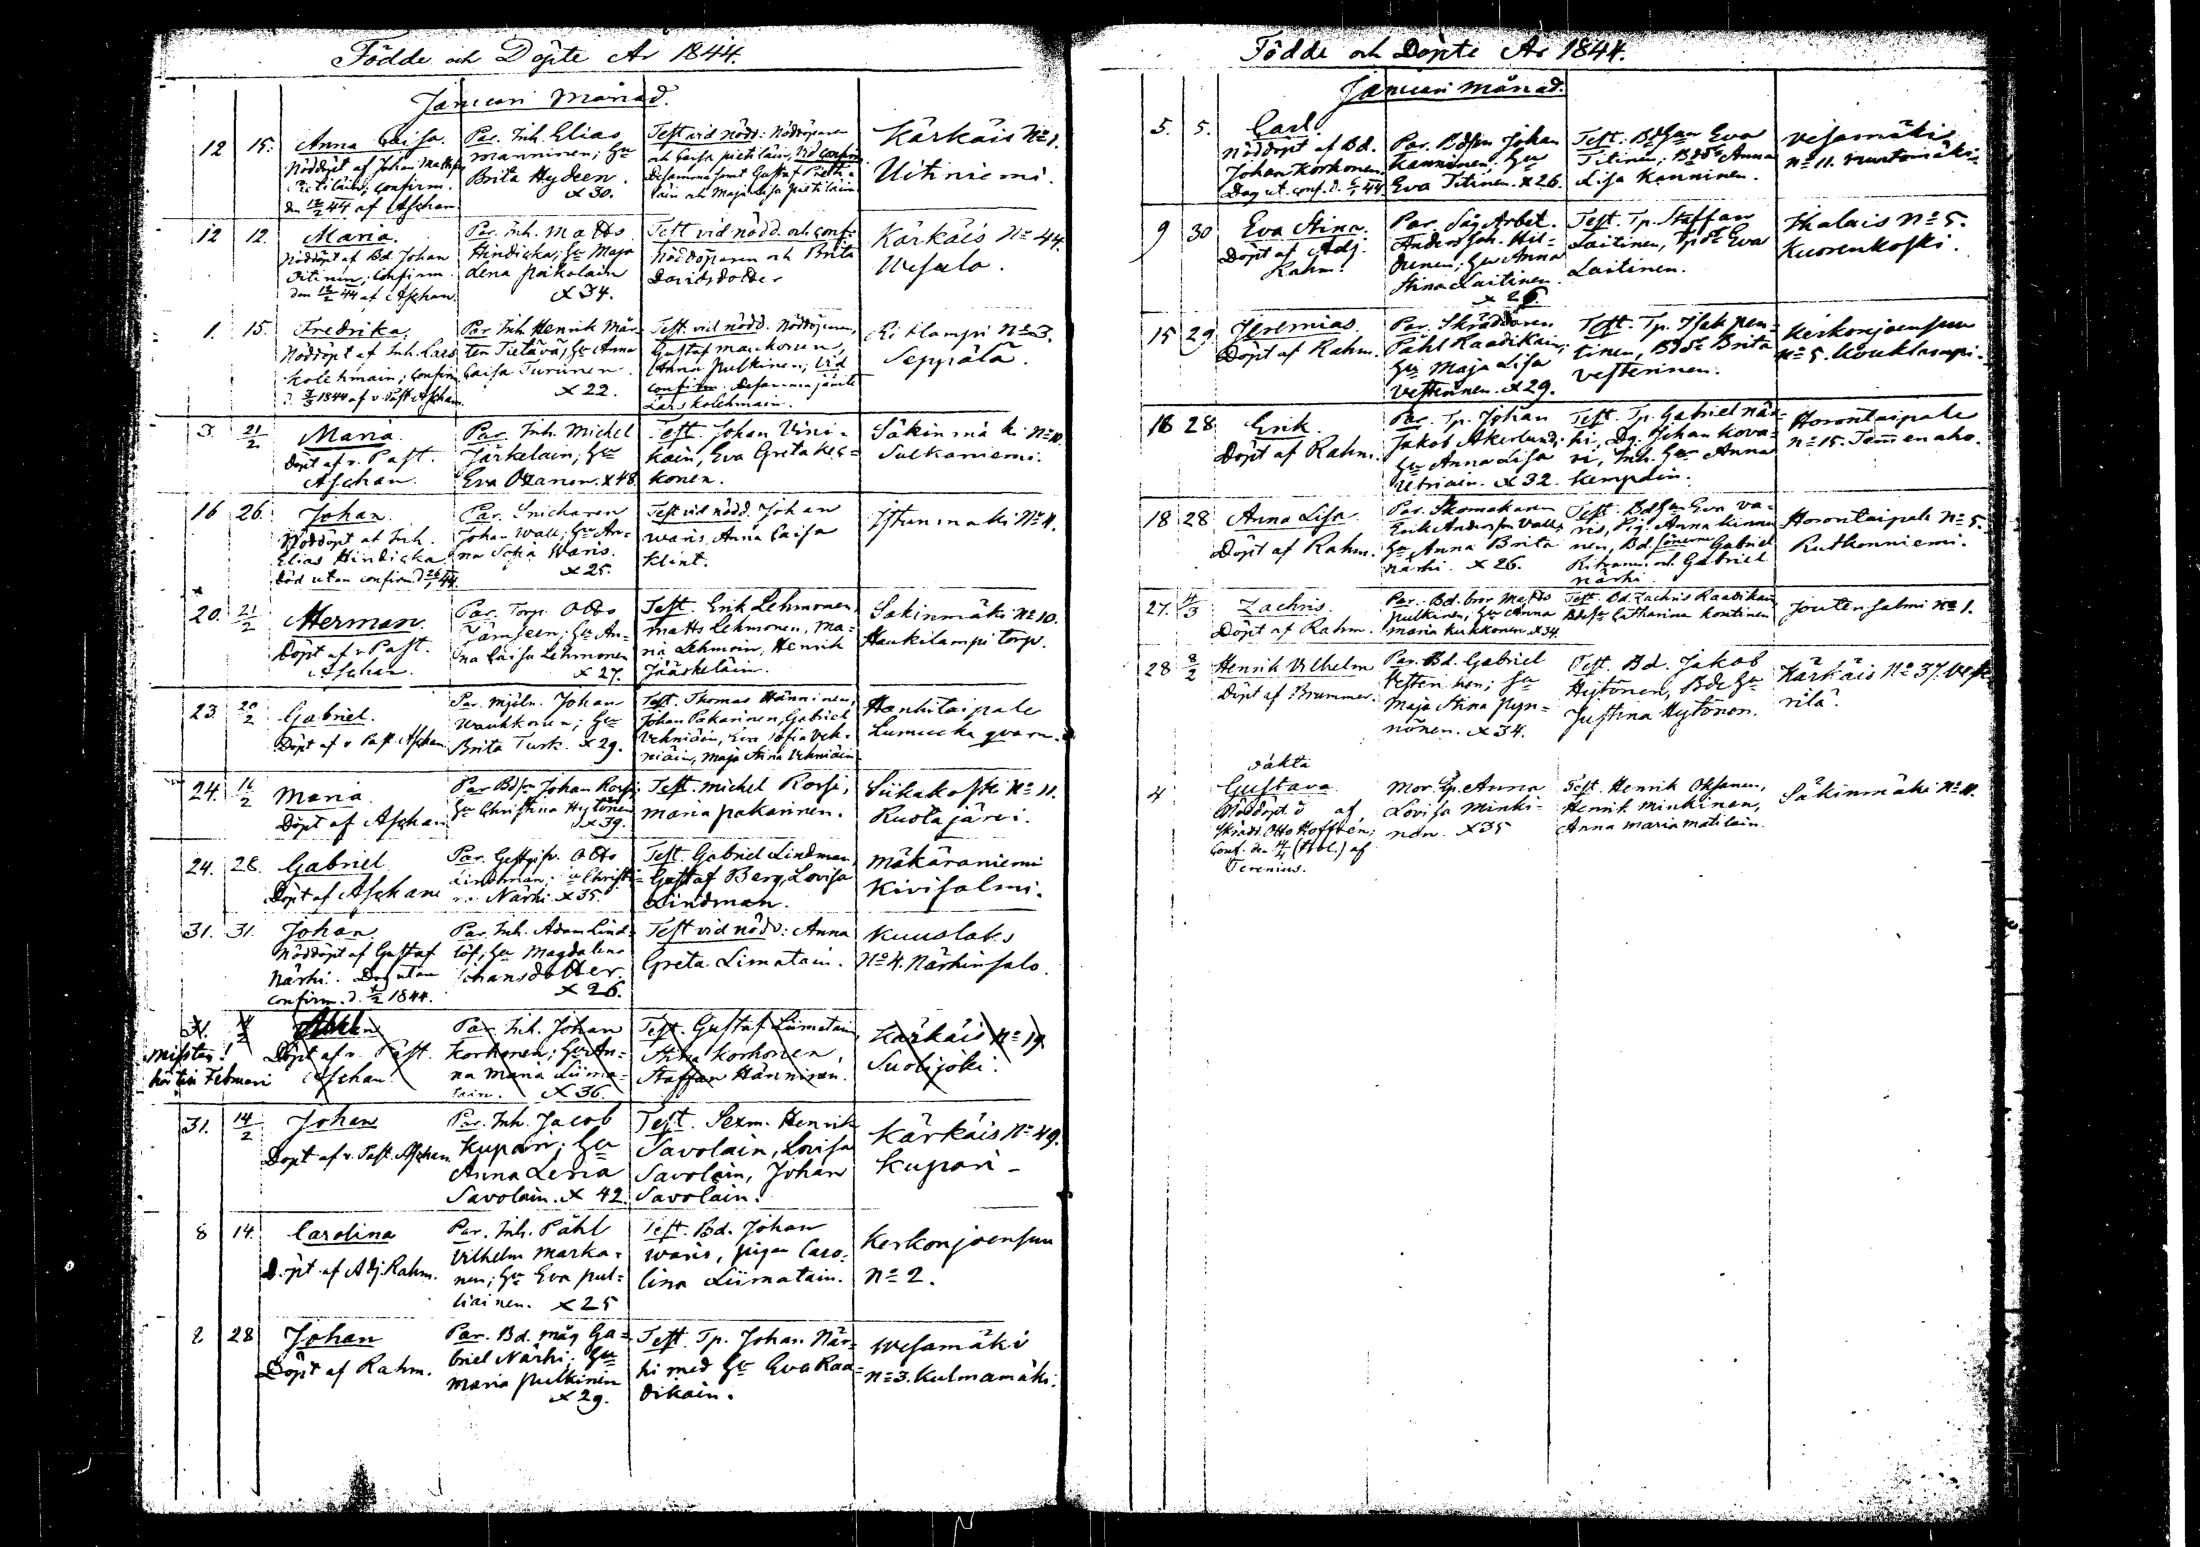 Födde och Döpte År 1844.
Januari Månad.
12 15. Anna Caisa. Par. Inh. Elias Test vid nödd: Nöddöparen Kärkäis No 1.
Nöddöpt af Johan Matths Manninen; Hu och Caisa Pietiläin, Vid confirm. Uitiniemi.
Pietiläin; confirm. Brita Hydeen. Desamma samt Gustaf Pieti-
den 18/2 44 af Aschan. x 30. läin och Maja Lisa Pietiläin
12 12. Maria. Par. Inh. Matts Test vid nödd. och conf: Kärkäis No 44.
Nöddöpt af Bd Johan Hindicka; Hu Maja Nöddöparen och Brita Uusula.
Titinen, Confirm. Lena Poikolain Davidsdotter
den 18/2 44 af Aschan. x 34.
1. 15. Fredrika. Par. Inh. Henrik Mår- Test. vid nödd. Nöddöparen, No 3.
Nöddöpt af Inh. Lars ten Tietävä, Hu Anna Gustaf Maukonen, Seppälä.
Kolehmain; Confirm. Caisa Turunen. Anna Pulkinen; Vid
1844 af v. Past. Aschan. x 22. confirm. desamma jämte
Lars Kolehmain.
3. 21/2 Maria. Par. Inh. Michel Test. Johan Vini- Säkinmäki No 10.
Döpt af v. Past. Järkelain; Hu kain, Eva Greta Kec- Sulkaniemi.
Aschan. Eva Oxanen. x 48. konen.
16 26. Johan. Par. Snickaren Test vid nödd. Johan Istunmäki No 4.
Nöddöpt af Inh. Johan Wall; Hu An- Waris, Anna Caisa
Elias Hindicka. na Sofia Waris. Klint.
död utan confirm. d. 26/1 44. x 25.
20. 21/2 Herman. Par. Torp. Otto Test. Erik Lehmonen, Säkinmäki No 10.
Döpt af v Past. Jämseen; Hu An- Matts Lehmonen, Ma- Haukilampi torp.
Aschan. na Caisa Lehmonen ria Lehmoin, Henrik
x 27. Jääskeläin.
23. 20/2 Gabriel. Par. Mjöln. Johan Test. Thomas Hänninen, Hankitaipale
Döpt af v Past. Aschan Waukkonen; Hu Johan Pakarinen, Gabriel Lumucka qvarn.
Brita Turk. x 29. Vehniäin, Eva Sofia Veh-
niäin, Maja Stina Vehniäin
24. 16/2 Maria. Par Bdsn Johan Korpi; Test. Michel Korpi, Siikakoski No 11.
Döpt af Aschan Hu Christina Hytönen Maria Pakarinen. Ruotajärvi.
x 39.
24. 28. Gabriel Par. Gestgifv. Otto Test. Gabriel Lindman, Mäkäraniemi
Döpt af Aschan Lindman; Hu Christi- Gustaf Berg, Lovisa Kivisalmi.
na Närhi x 35. Lindman.
31. 31. Johan Par. Inh. Adam Lind- Test vid nödd: Anna Kuuslaks
Nöddöpt af Gustaf löf; Hu Magdalena Greta Limatain. No 4. Närhinsalo.
Närhi. Dog utan Johansdotter.
confirm. d. 1/2 1844. x 26.
31. Par. Inh. Johan Test. Gustaf Liimatain, Kärkäis No 19
misstag! Döpt af v. Past. Korhonen; Hu An- Stina Korhonen, Suolijoki.
hör till Februari Aschan. na Maria Liima- Staffan Hänninen.
tain. x 36.
31. 14/2 Johan Par. Inh. Jacob Test. Sexm. Henrik Kärkäis No 49.
Döpt af v. Past. Aschan Kupari; Hu Savolain, Lovisa Kupari
Anna Lena Savolain, Johan
Savolain. x 42. Savolain.
8 14. Carolina Par. Inh. Påhl Test. Bd. Johan Kerkonjoensuu
Döpt af Adj. Rahm. Vilhelm Marka- Waris, pigan Caro- No 2.
nen; Hu Eva Pul- lina Liimatain.
liainen. x 25
2 28 Johan Par. Bd. måg Ga- Test. Tp. Johan När- Wesamäki
Döpt af Rahm. briel Närhi; Hu hi med Hu Eva Raa- No 3. Kulmamäki.
Maria Pulkinen dikain.
x 29.
Födde och Döpte År 1844.
Januari Månad.
5. 5. Carl. Par. Bdsn Johan Test. Bdhu Eva Vesamäki
Nöddöpt af Bd. Kanninen. Hu Titinen; Bddr Anna No 11. Vuontomäki.
Johan Korhonen. Eva Titinen. x 26. Lisa Kanninen.
Dog ut. conf. d. 5/1 44.
9 30 Eva Stina. Par. Såg Arbet. Test. Tp. Staffan Thalais No 5.
Döpt af Adj. Anders Joh. Hil- Laitinen, Tpdr Eva Kuorenkoski.
Rahm. dunen; Hu Anna Laitinen.
Stina Laitinen.
x 26.
15 29 Jeremias. Par. Skräddaren Test. Tp. Isak Pen- Kerkonjoensuu
Döpt af Rahm. Påhl Raadikain; tinen, Bddr Brita No 5. Koukslampi.
Hu Maja Lisa Vesterinen.
Vesterinen. x 29.
18 28 Erik. Par. Tp. Johan Test. Tp. Gabriel När- Horontaipale
Döpt af Rahm. Jakob Åkerlund; hi, Dg. Johan Kova- No 15. Temenaho.
Hu Anna Lisa ri, Inh. Hu Anna
Utriain. x 32. Kempäin.
18 28 Anna Lisa Par. Skomakaren Test. Bdhu Eva Va- Horontaipale No 5.
Döpt af Rahm. Erik Andersson Valli; ris, Pig. Anna Kinnu- Rutkonniemi.
Hu Anna Brita nen, Bd. sönerna Gabriel
Närhi. x 26. och Gabriel
Närhi
27. 4/3 Zachris. Par. Bd. bror Matts Test. Bd. Zachris Raadikain Joutensalmi No 1.
Döpt af Rahm. Pulkinen, Hu Anna Bdhu Catharina Kontinen
Maria Kukkonen x 34.
28 2/2 Henrik Vilhelm Par. Bd. Gabriel Test. Bd. Jakob Kärkäis No 37. Veste-
Döpt af Brummer. Vesterinen; Hu Hytönen, Bde Hu rilä.
Maja Stina Pyn- Justina Hytönen.
nönen. x 34.
oäkta
4 Gustava Mor. Pig. Anna Test. Henrik Oksanen, Säkinmäki No 11.
Nöddöpt d af, Lovisa Minki- Henrik Minkinen,
Skrädd. Otto Hoffren; nen. x 35 Anna Maria Matilain.
Conf. den af
Terenius.